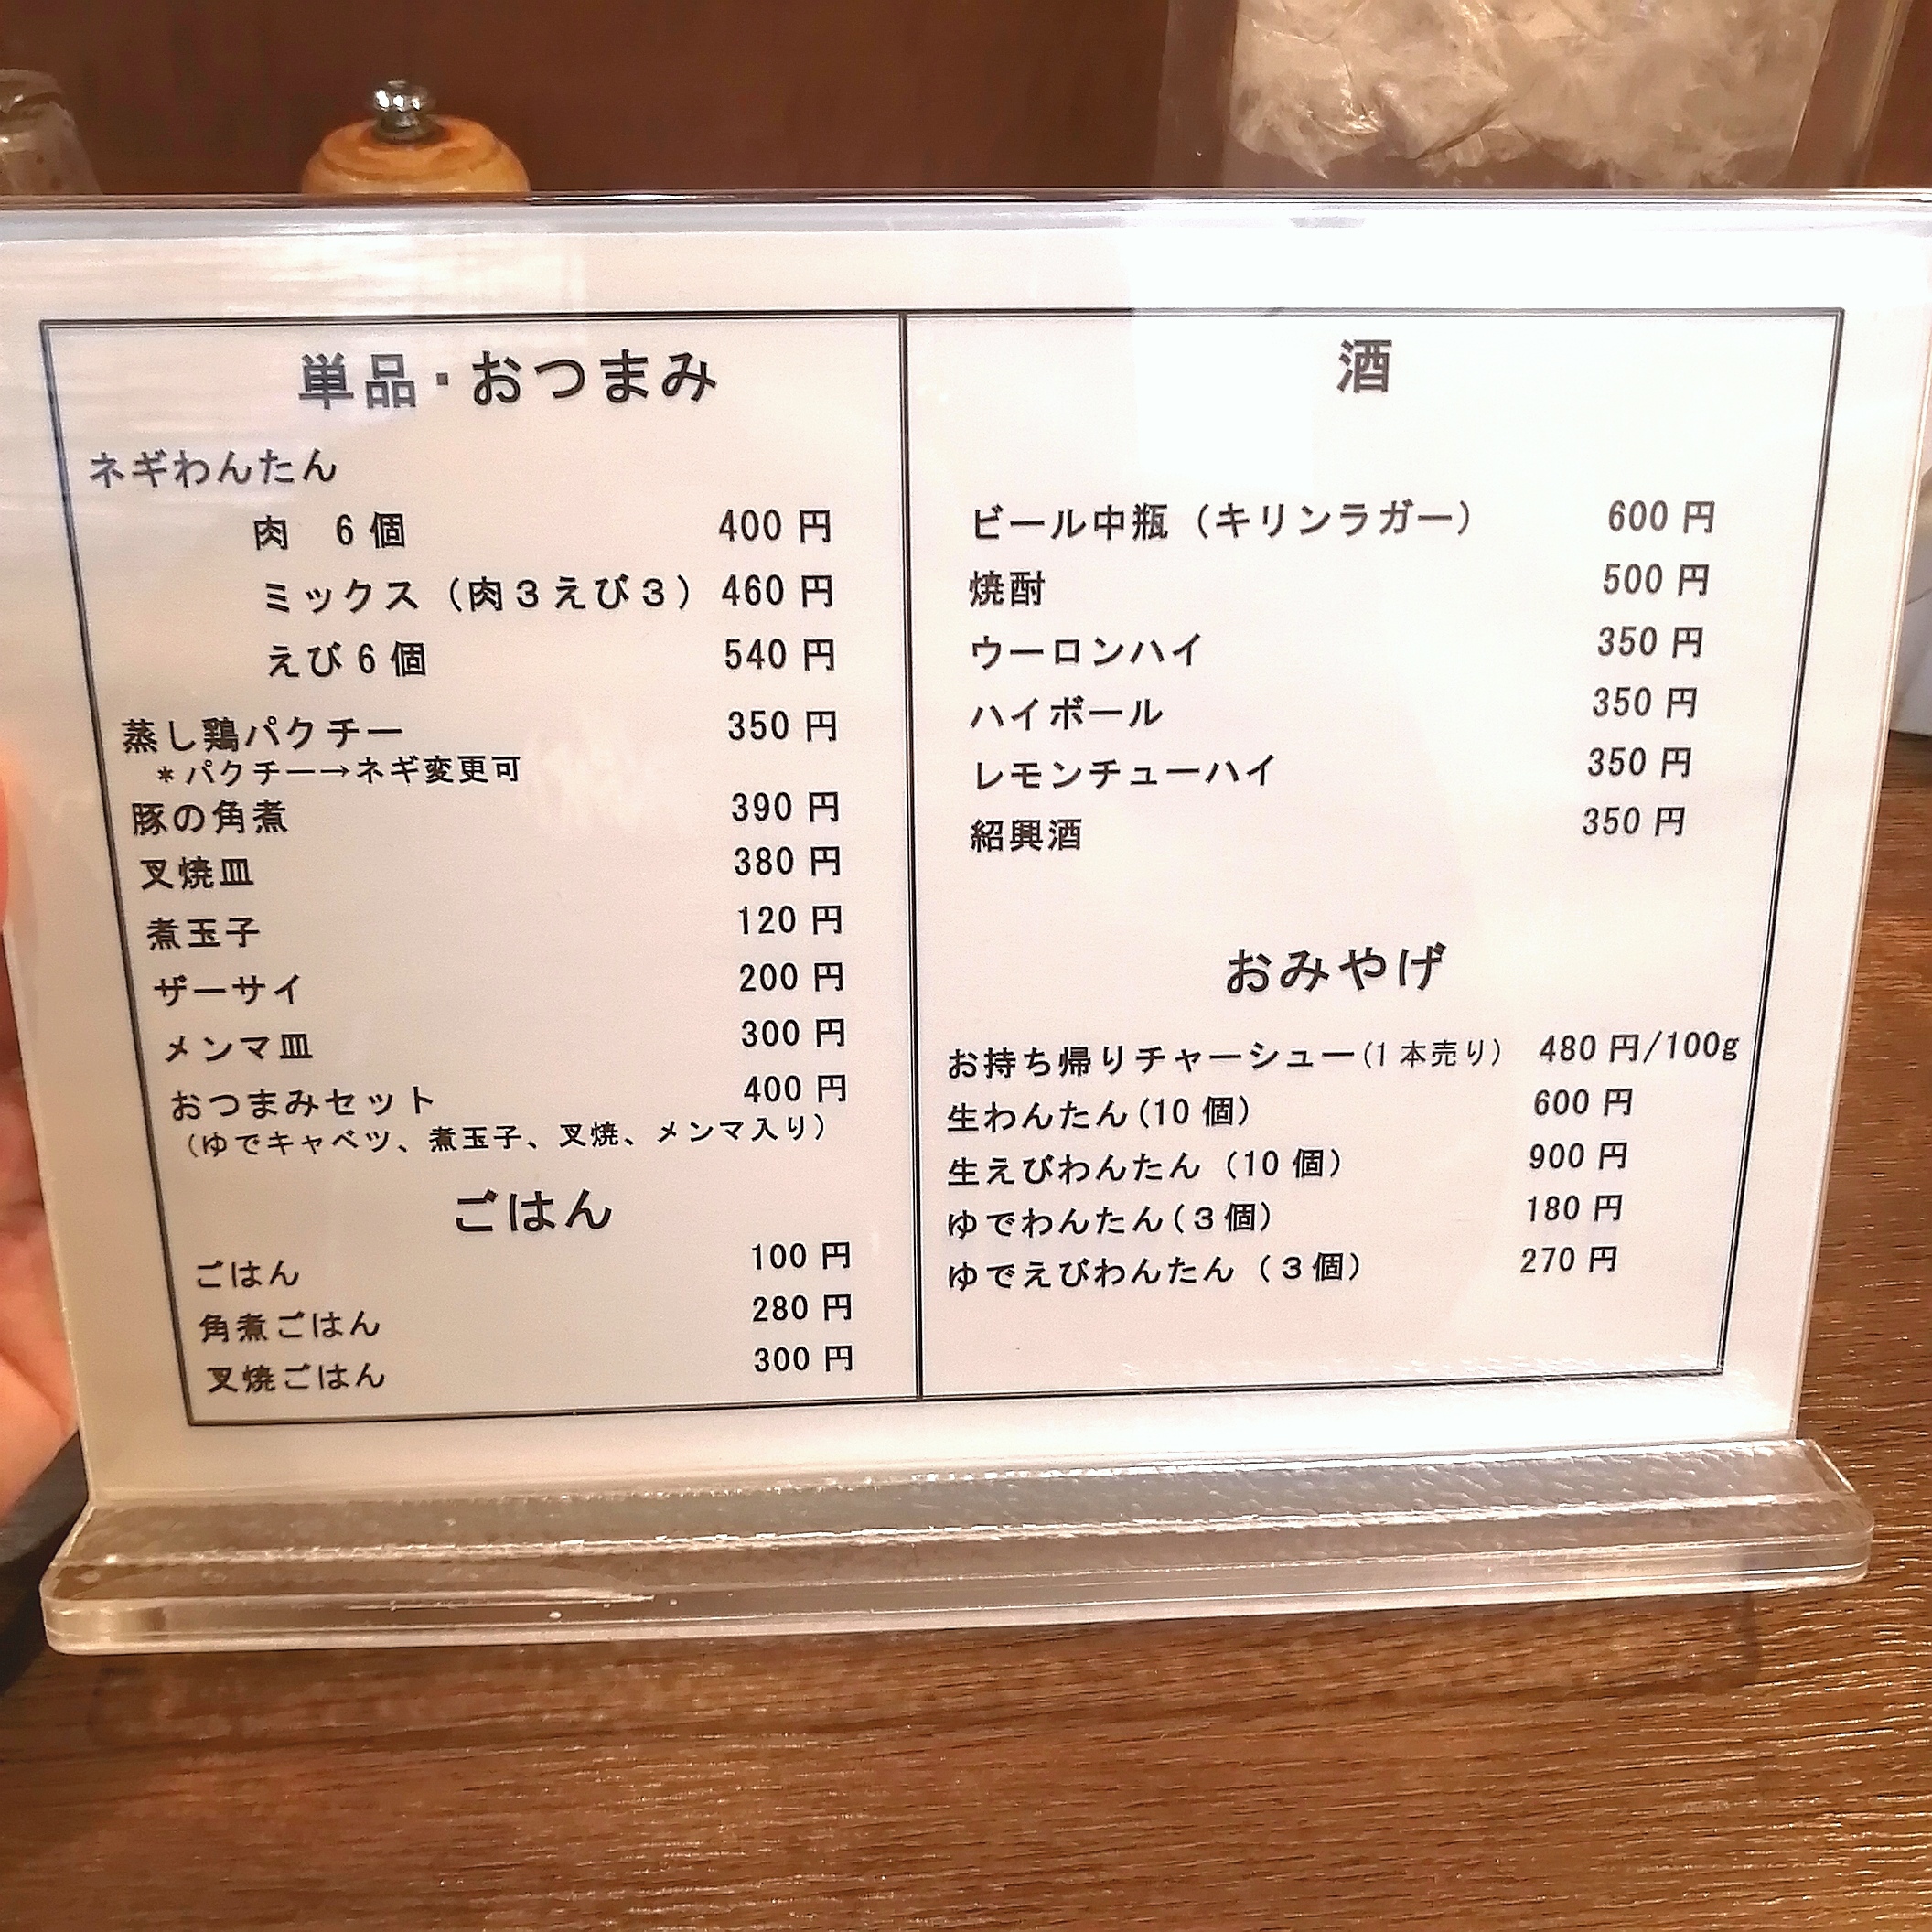 単品・おつまみ
ネギわんたん
肉 6個 400円
ミックス（肉３えび３） 460円
えび6個 540円
蒸し鶏パクチー 350円
＊パクチー→ネギ変更可
豚の角煮 390円
叉焼皿 380円
煮玉子 120円
ザーサイ 200円
メンマ皿 300円
おつまみセット 400円
（ゆでキャベツ、煮玉子、叉焼、メンマ入り）
ごはん
ごはん 100円
角煮ごはん 280円
叉焼ごはん 300円
酒
ビール中瓶（キリンラガー） 600円
焼酎 500円
ウーロンハイ 350円
ハイボール 350円
レモンチューハイ 350円
紹興酒 350円
おみやげ
お持ち帰りチャーシュー(1本売り) 480円/100g
生わんたん(10個) 600円
生えびわんたん（10個） 900円
ゆでわんたん(３個) 180円
ゆでえびわんたん（３個） 270円